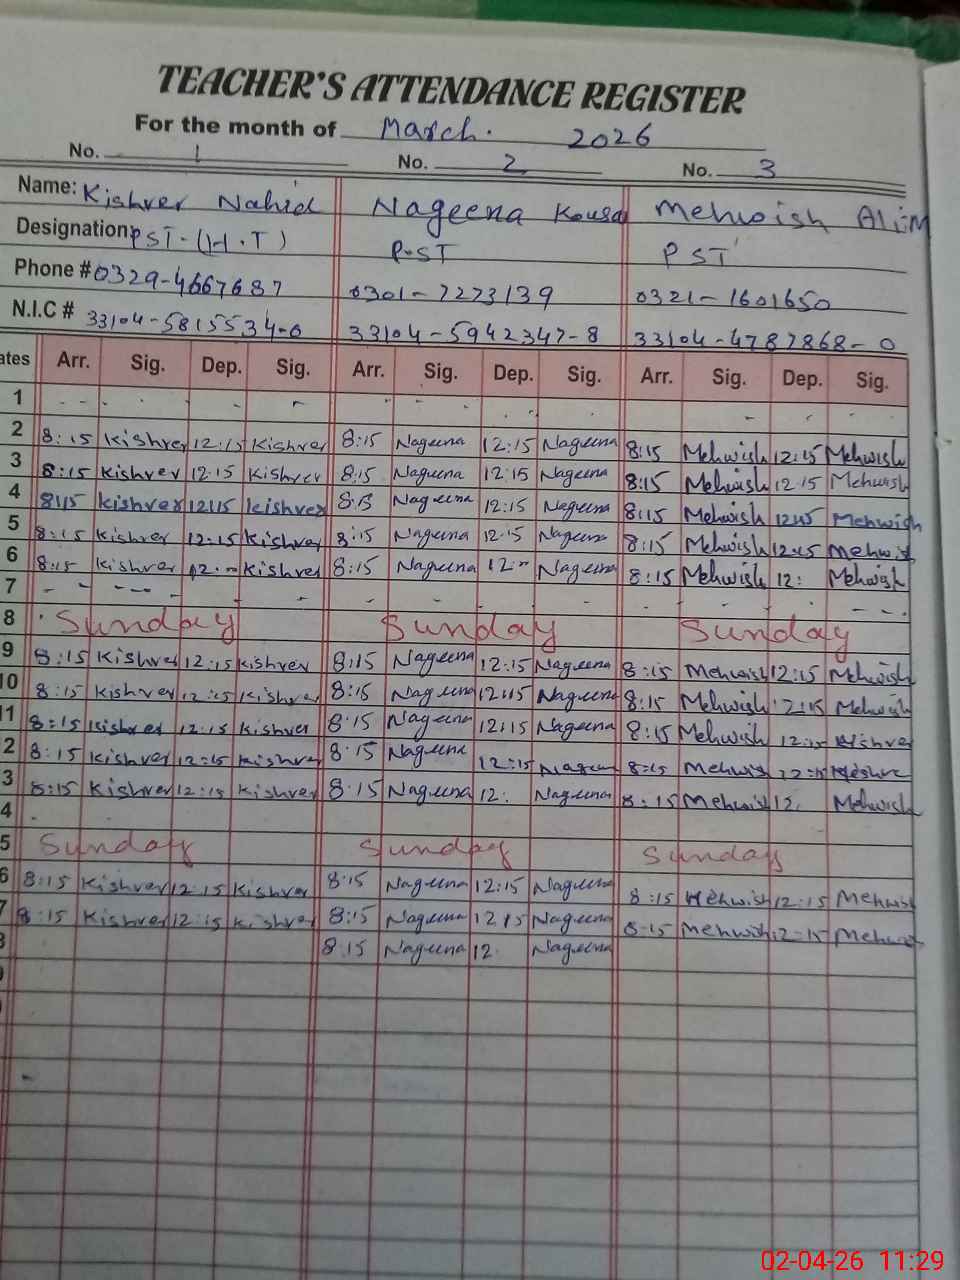 TEACHER'S ATTENDANCE REGISTER
For the month of March. 2026
No. 1 No. 2 No. 3
Name: Kishver Nahid Nageena Kousa Mehwish ALiM
Designation: PST-(H.T) P.ST PST
Phone # 0329-4667687 0301-7273139 0321-1601650
N.I.C # 33104-5815534-0 33104-5942347-8 33104-4787868-0
ates Arr. Sig. Dep. Sig. Arr. Sig. Dep. Sig. Arr. Sig. Dep. Sig.
1
2 8:15 Kishver 12:15 Kishver 8:15 Nageena 12:15 Nageena 8:15 Mehwish 12:15 Mehwish
3 8:15 Kishver 12:15 Kishver 8:15 Nageena 12:15 Nageena 8:15 Mehwish 12:15 Mehwish
4 8:15 Kishver 12:15 Kishver 8:15 Nageena 12:15 Nageena 8:15 Mehwish 12:15 Mehwish
5 8:15 Kishver 12:15 Kishver 8:15 Nageena 12:15 Nageena 8:15 Mehwish 12:15 Mehwish
6 8:15 Kishver 12: Kishver 8:15 Nageena 12: Nageena 8:15 Mehwish 12: Mehwish
7
8 Sunday Sunday Sunday
9 8:15 Kishver 12:15 Kishver 8:15 Nageena 12:15 Nageena 8:15 Mehwish 12:15 Mehwish
10 8:15 Kishver 12:15 Kishver 8:15 Nageena 12:15 Nageena 8:15 Mehwish 12:15 Mehwish
11 8:15 Kishver 12:15 Kishver 8:15 Nageena 12:15 Nageena 8:15 Mehwish 12:15
2 8:15 Kishver 12:15 Kishver 8:15 Nageena 12:15 Nageena 8:15 Mehwish 12:15
3 8:15 Kishver 12:15 Kishver 8:15 Nageena 12: Nageena 8:15 Mehwish 12. Mehwish
4
5 Sunday Sunday Sunday
6 8:15 Kishver 12:15 Kishver 8:15 Nageena 12:15 Nageena 8:15 Mehwish 12:15 Mehwish
7 8:15 Kishver 12:15 Kishver 8:15 Nageena 12:15 Nageena 8:15 Mehwish 12:15 Mehwish
8 8:15 Nageena 12. Nageena
02-04-26 11:29